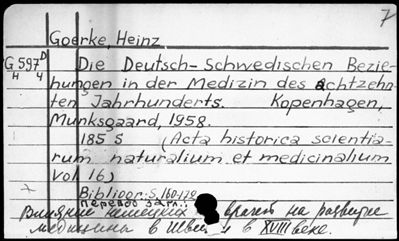 7
Goerke, Heinz
G 597 D
H 4
Die Deutsch-Schwedischen Bezie-
hungen in der Medizin des achtzehn-
ten Jahrhunderts. Kopenhagen,
Munksgaard, 1958.
185 S (Acta historica scientia-
rum naturalium et medicinalium
Vol 16)
Bibliogr.: S. 160-179
перевод загл.:
Влияние немецких врачей на развитие
медицины в Швеции в XVIII веке.